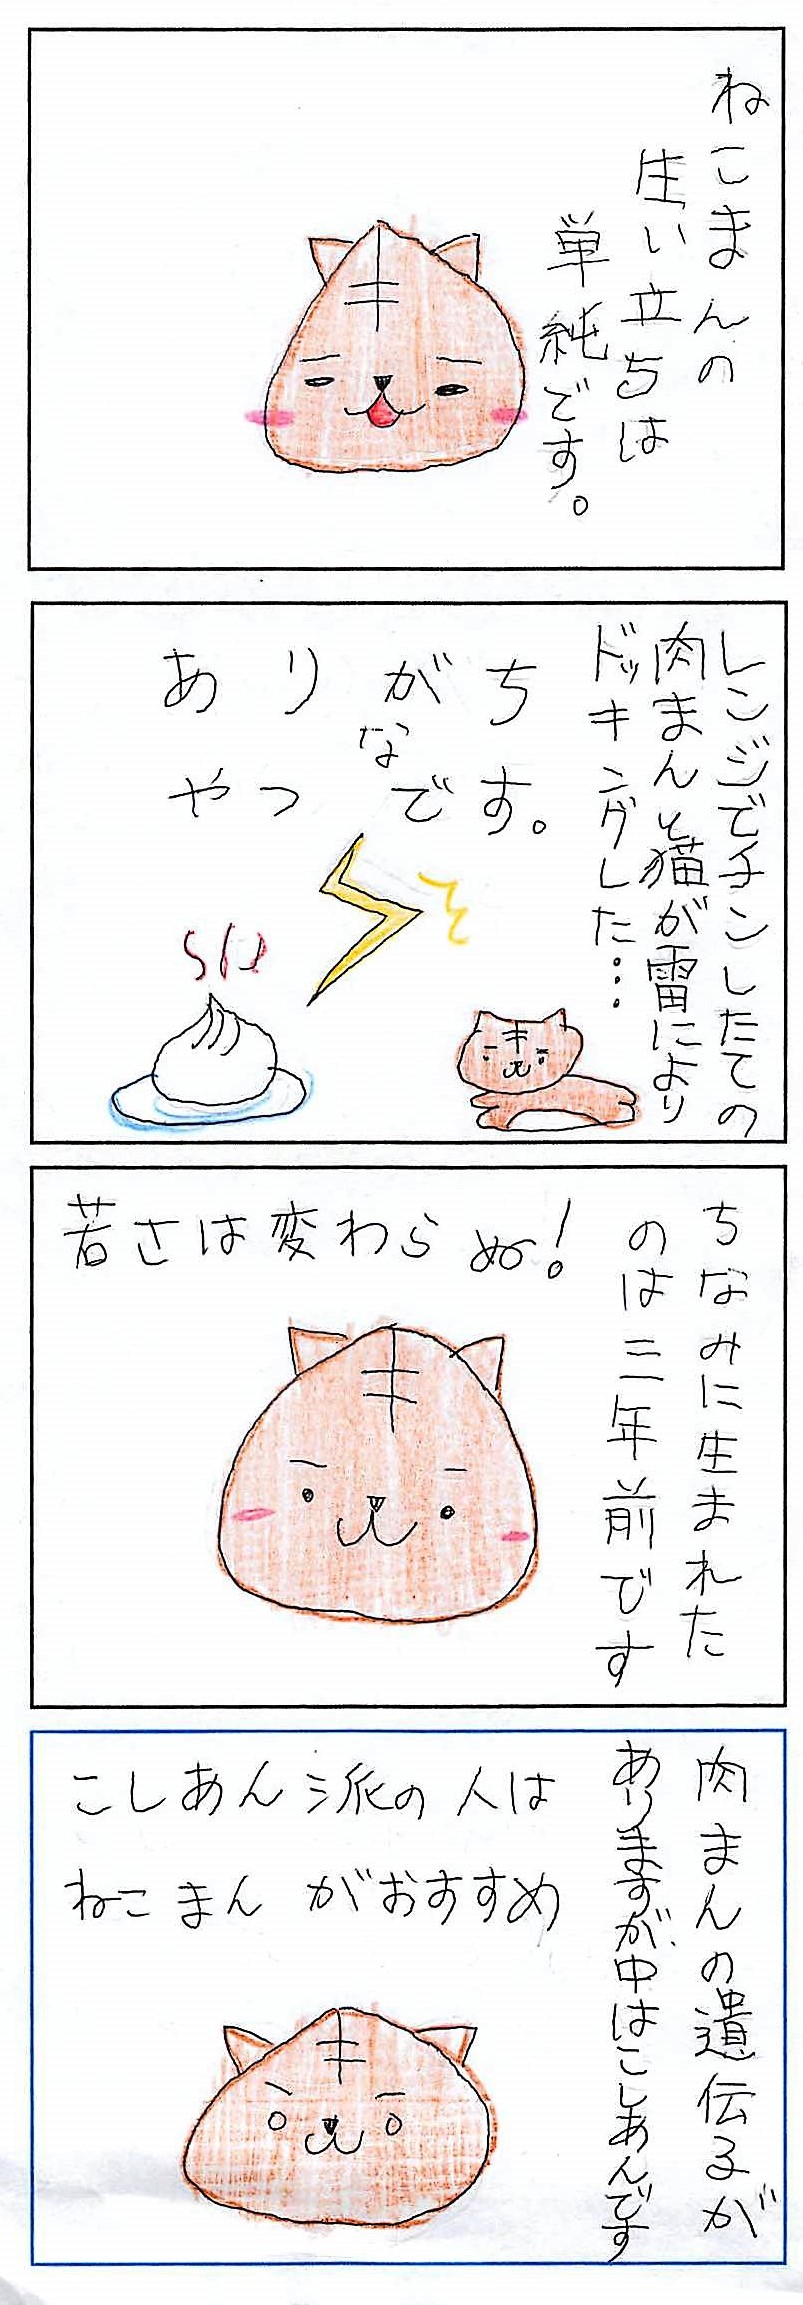 ねこまんの
生い立ちは
単純です。
レンジでチンしたての
肉まんと猫が雷により
ドッキングした…
ありがち
な
やつです。
ちなみに生まれた
のは三年前です
若さは変わらぬ!
肉まんの遺伝子が
ありますが、中はこしあんです
こしあん派の人は
ねこまんがおすすめ